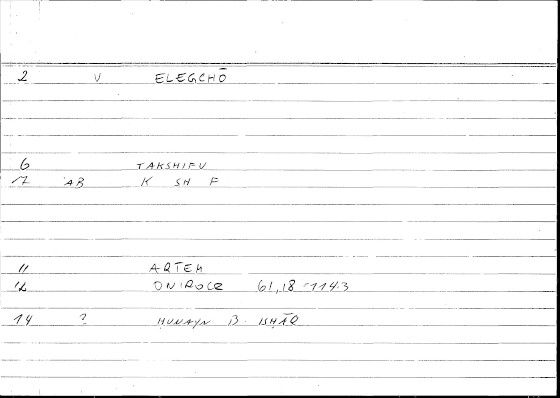 2 V ELEGCHŌ
6 TAKSHIFU
17 AB K SH F
11 ARTEM
12 ONIROCR 61,18 114.3
14 ? ḤUNAYN B ISḤĀQ